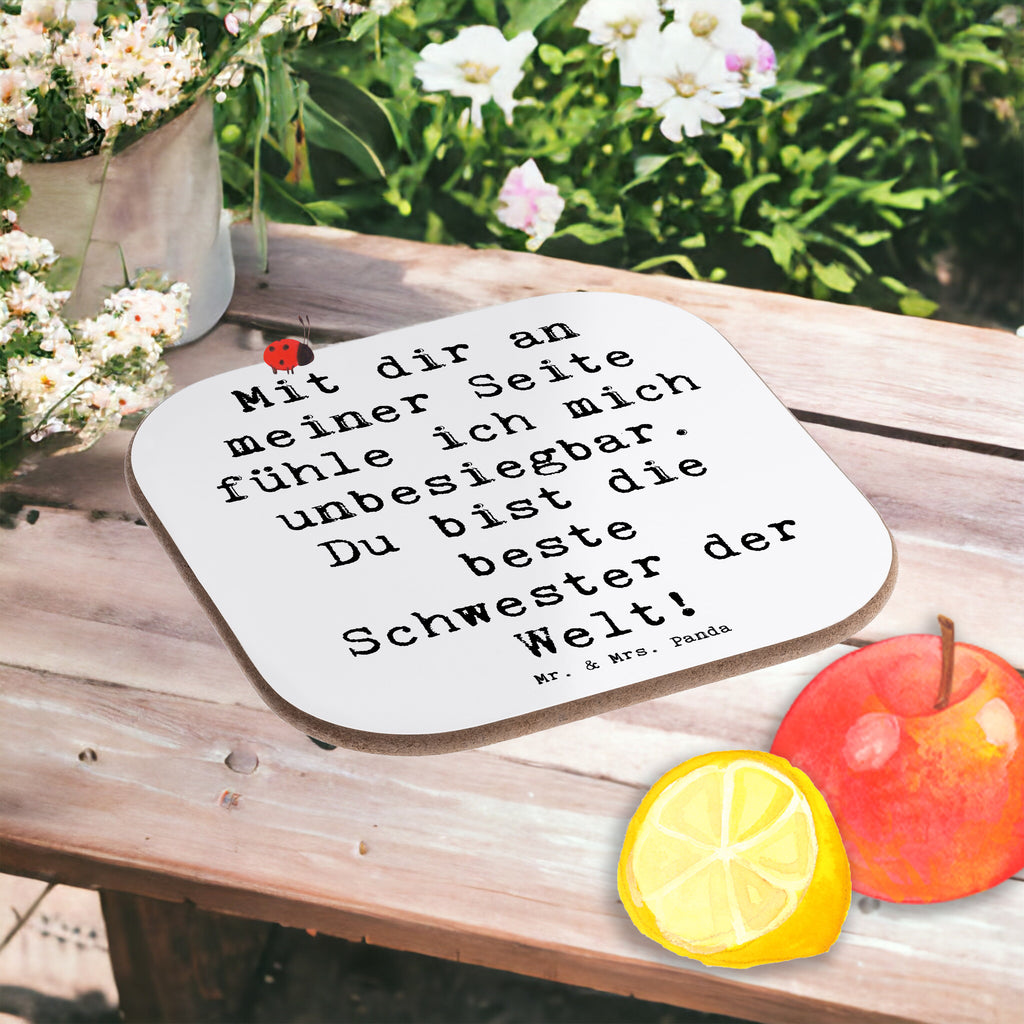 Mit dir an
meiner Seite
fühle ich mich
unbesiegbar.
Du bist die
beste
Schwester der
Welt!
Mr. & Mrs. Panda